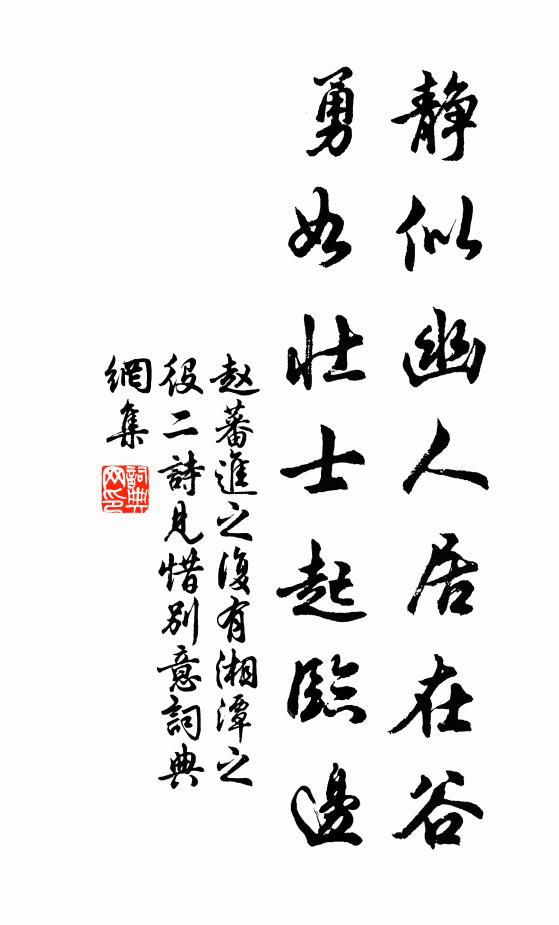 静似幽人居在谷
勇如壮士起臨邊
赵蕃進之復有湘潭之
役二詩見惜别意詞典
網集
詞典網印